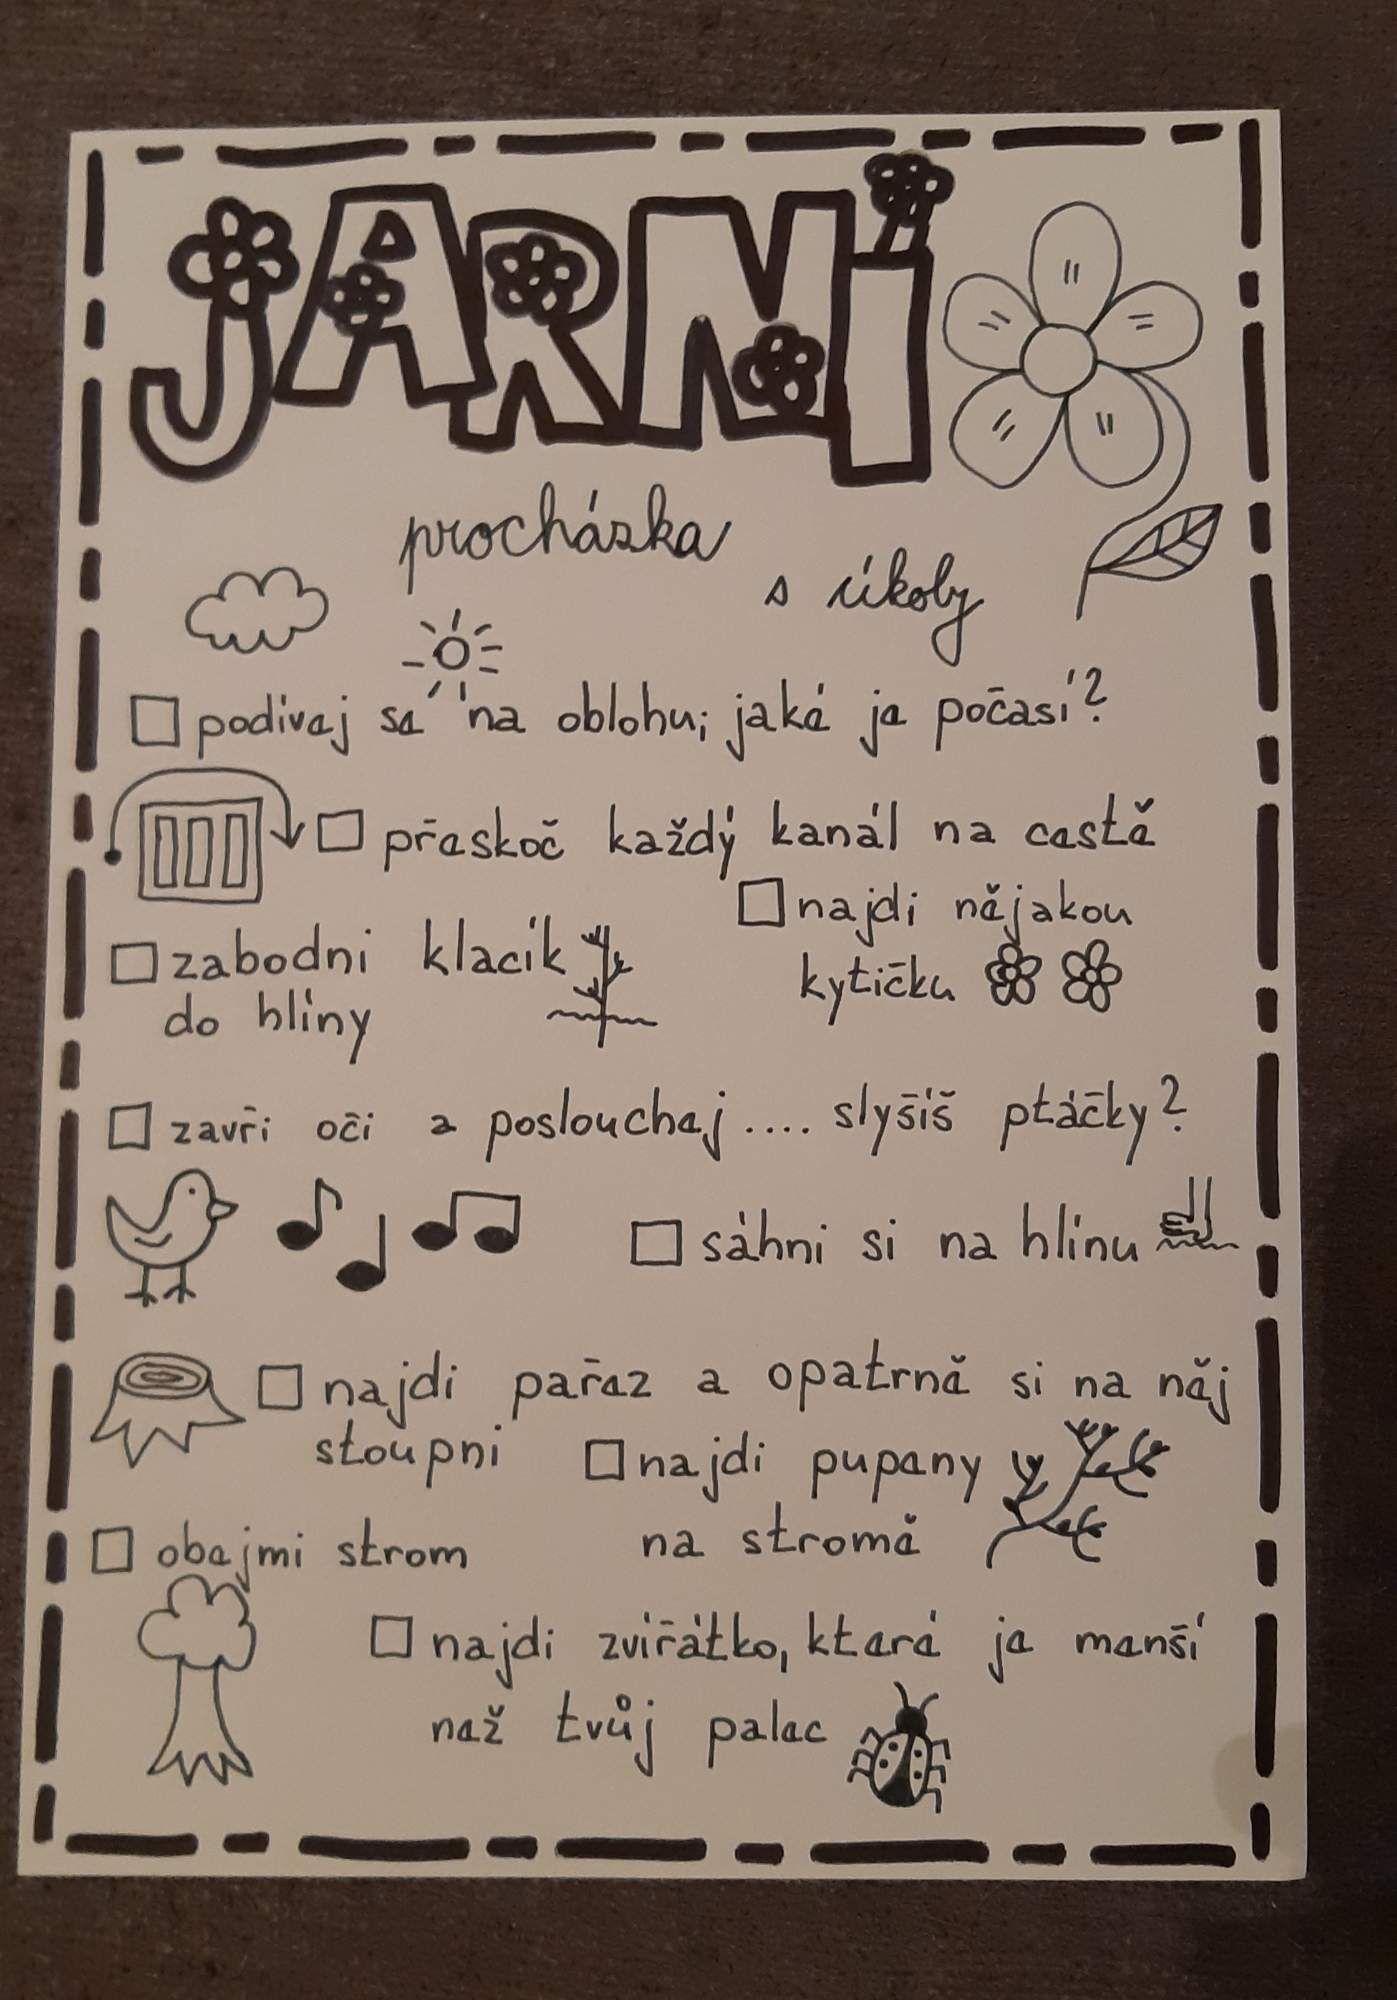 JARNÍ
procházka
s úkoly
podívej se na oblohu; jaké je počasí?
přeskoč každý kanál na cestě
najdi nějakou
kytičku
zabodni klacík
do hlíny
zavři oči a poslouchej.... slyšíš ptáčky?
sáhni si na hlínu
najdi pařez a opatrně si na něj
stoupni
najdi pupeny
na stromě
obejmi strom
najdi zvířátko, které je menší
než tvůj palec